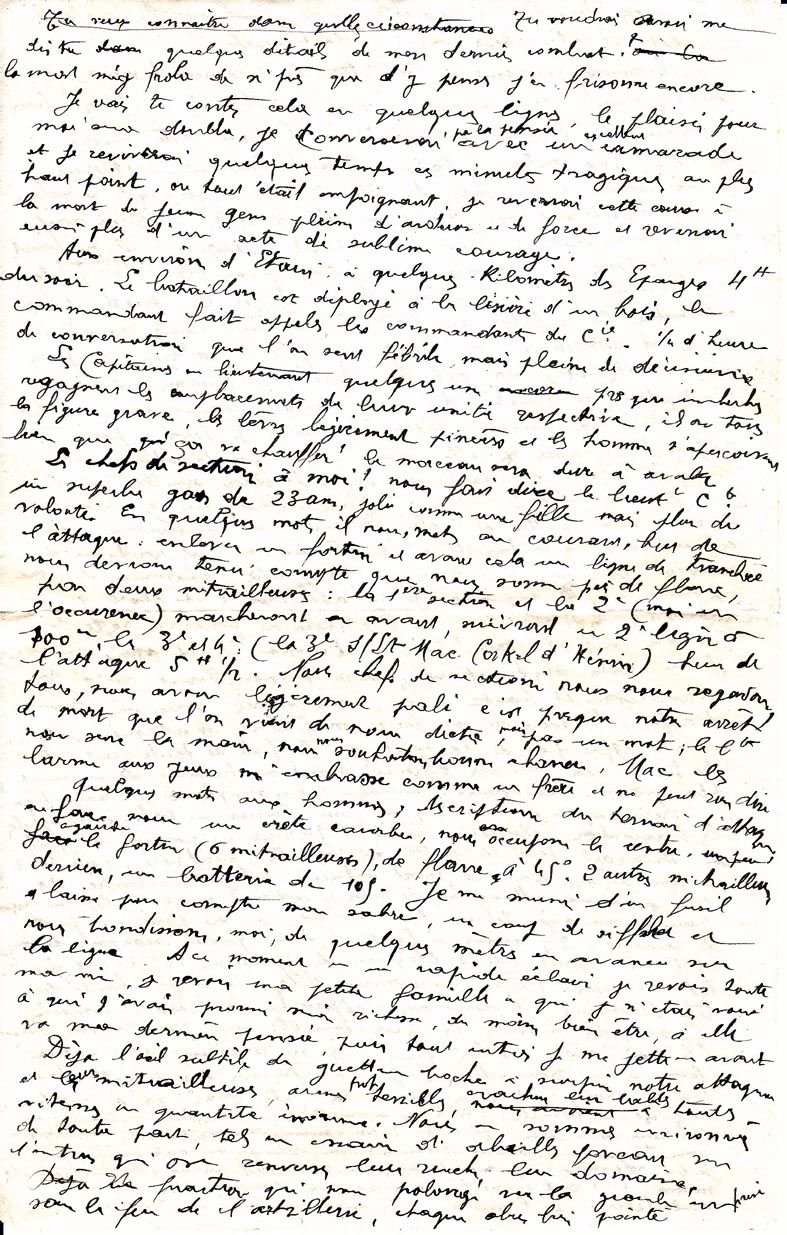 Tu veux connaître dans quelle circonstances Tu voudrai aussi me
dis tu dans quelques détails de mon dernier combat.
la mort m'y frola de si près que d'y penser j'en frisonne encore.
Je vais te conter cela en quelques lignes, le plaisir pour
moi sera double, je converserai par la pensée avec un excellent camarade
et je revivrai quelques temps ces minutes tragiques au plus
haut point, ou tout était empoignant, je reverrai cette course à
la mort de jeunes gens pleins d'ardeur et de force et reverrai
aussi plus d'un acte de sublime courage.
Aux environ d'Etain, à quelques Kilomètres des Eparges 4 H
du soir. Le bataillon est déployé à la lisière d'un bois, le
commandant fait appeler les commandants de Cie. 1/4 d'heure
de conversation que l'on sent fébrile, mais pleine de décisions
Les Capitaines ou lieutenant quelques uns encore presque imberbes
regagnent les emplacements de leurs unités respective, ils ont tous
la figure grave, les lèvres légèrement pincées et les hommes s'aperçoivent
bien que ça va chauffer! le morceau sera dure à avaler
Les chefs de section à moi! nous fait dire le lieut Ct
un superbe gas de 23 ans, joli comme une fille mais plein de
volonté En quelques mots, il nous mets au courant, but de
l'attaque: enlever un fortin et avec cela une ligne de tranchée
nous devrons tenir compte que nous serons pris de flanc,
par deux mitrailleuses: la 1ère section et la 2e (moi en
l'occurence) marcheront en avant, suivront en 2e ligne à
100m, la 3e et 4e (la 3e S/Lt Mac Corkel d'Hénin) heure de
l'attaque 5 H 1/2. Nous chefs de section nous nous regardons
tous, nous avons légèrement pali c'est presque notre arrêt
de mort que l'on vient de nous dicter, mais pas un mot; le Ct
nous serre la main, nous nous souhaitons bonne chance, Mac les
larmes aux yeux m'embrasse comme un frère et ne peut rien dire
quelques mots aux hommes, description du terrain d'attaque
en face nous une crête courbe, nous en occupons le centre, un peu
à gauche le fortin (6 mitrailleuses), de flanc, à 45° 2 autres mitrailleuses
derrière, une batterie de 105. Je me muni d'un fusil
laisse pour compte mon sabre, un coup de sifflet et
nous bondissons, moi, de quelques mètres en avance sur
la ligne. A ce moment en un rapide éclair je revois toute
ma vie, je revois ma petite famille à qui je m'étais voué
à qui j'avais promis sinon richesse, du moins bien être, à elle
va ma dernière pensée, puis tout entier je me jette en avant
Déja l'oeil subtil du guetteur boche a surpris notre attaque
et leurs mitrailleuses, armes fort terribles, crachent leurs balles à toute
vitesse en quantité inouïe. Nous en sommes environnés
de toute part, tels un essaim d'abeilles forcené sur
l'intrus qui ose renverser leur ruche, leur domaine.
Déjà la fraction qui nous prolonge sur la gauche est prise
sous le feu de l'artillerie, chaque obus bien pointé